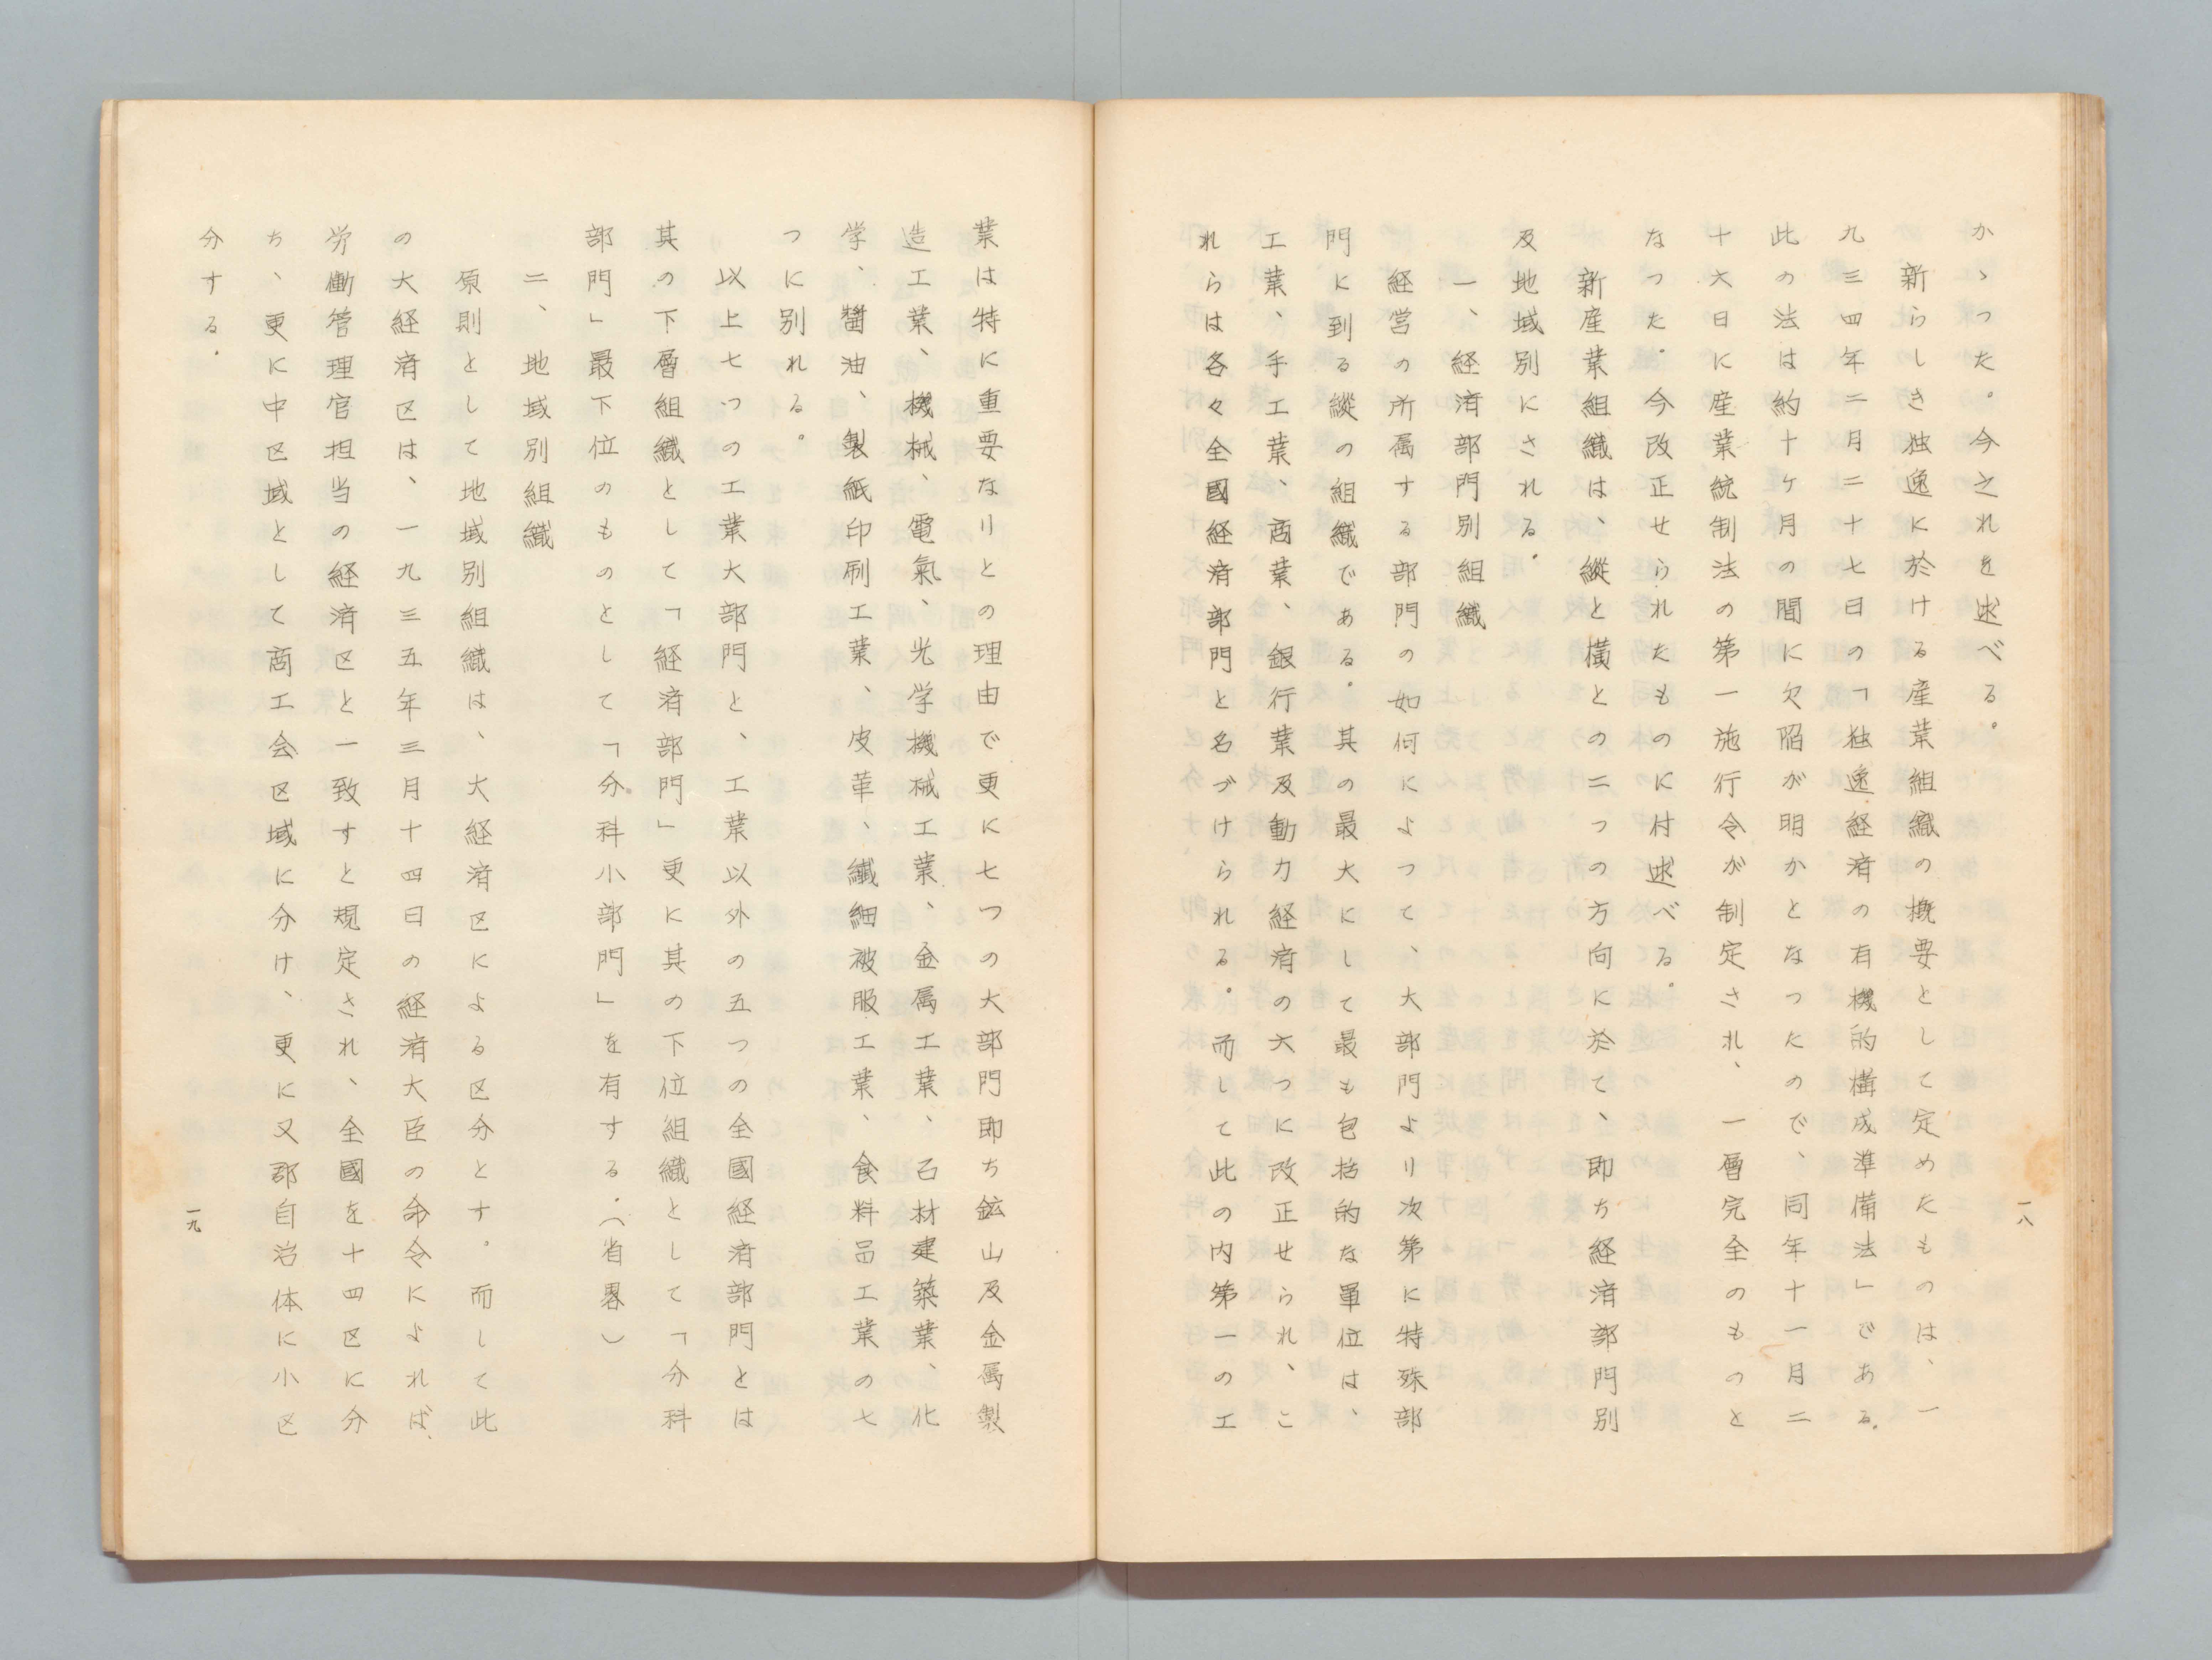 かゝった。今之れを述べる。
新らしき独逸に於ける産業組織の概要として定めたものは、一
九三四年二月二十七日の「独逸経済の有機的構成準備法」である。
此の法は約十ヶ月の間に欠陥が明かとなつたので、同年十一月二
十六日に産業統制法の第一施行令が制定され、一層完全のものと
なつた。今改正せられたものに付述べる。
新産業組織は、縦と横との二つの方向に於て、即ち経済部門別
及地域別にされる。
一、経済部門別組織
経営の所属する部門の如何によつて、大部門より次第に特殊部
門に到る縦の組織である。其の最大にして最も包括的な單位は、
工業、手工業、商業、銀行業及動力経済の六つに改正せられ、こ
れらは各々全國経済部門と名づけられる。而して此の内第一の工
一八
業は特に重要なりとの理由で更に七つの大部門即ち鉱山及金属製
造工業、機械、電氣、光学機械工業、金属工業、石材建築業、化
学、醤油、製紙印刷工業、皮革、繊細被服工業、食料品工業の七
つに別れる。
以上七つの工業大部門と、工業以外の五つの全國経済部門とは
其の下層組織として「経済部門」更に其の下位組織として「分科
部門」最下位のものとして「分科小部門」を有する。（省畧）
二、地域別組織
原則として地域別組織は、大経済区による区分とす。而して此
の大経済区は、一九三五年三月十四日の経済大臣の命令によれば、
労働管理官担当の経済区と一致すと規定され、全國を十四区に分
ち、更に中区域として商工会区域に分け、更に又郡自治体に小区
分する。
一九